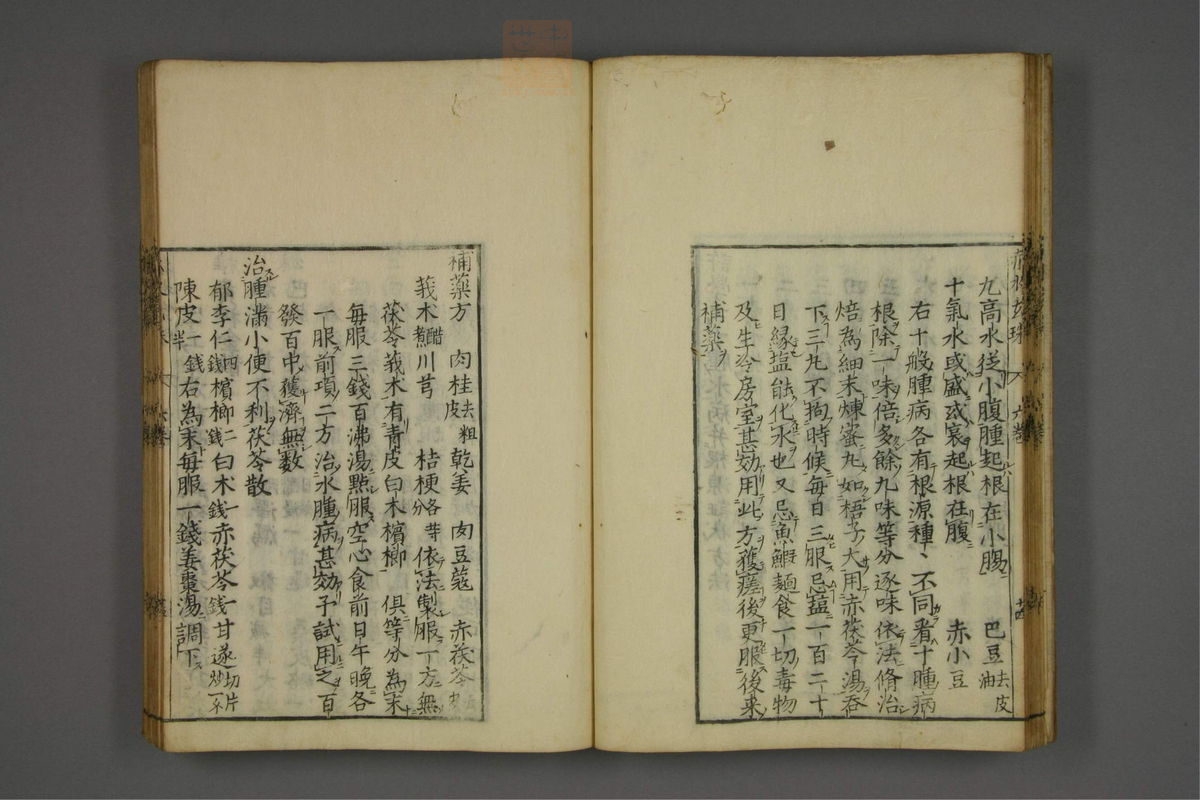 九高水從小腹腫起根在小腸　巴豆去皮油
十氣水或盛或衰起根在腹　赤小豆
右十般腫病各有根源種〻不同看十腫病
根除一味倍多餘九味等分逐味依法脩治
焙為細末煉蜜丸如梧子大用赤茯苓湯吞
下三丸不拘時候每日三服忌塩一百二十
日縁塩能化水也又忌魚鰕麺食一切毒物
及生冷房室甚効用此方獲瘥後更服後来
補藥
補藥方　肉桂去粗皮　乾姜　肉豆蔻　赤茯苓
莪朮醋煮　川芎　桔梗各等分　依法製服一方無
茯苓莪朮有青皮白朮檳榔　俱等分為末
每服三錢百沸湯點服空心食前日午晚各
一服前項二方治水腫病甚効予試用之百
發百中獲濟無数
治腫滿小便不利茯苓散
郁李仁四錢檳榔二錢白朮一錢赤茯苓一錢甘遂切片炒
陳皮一錢半右為末每服一錢姜棗湯調下